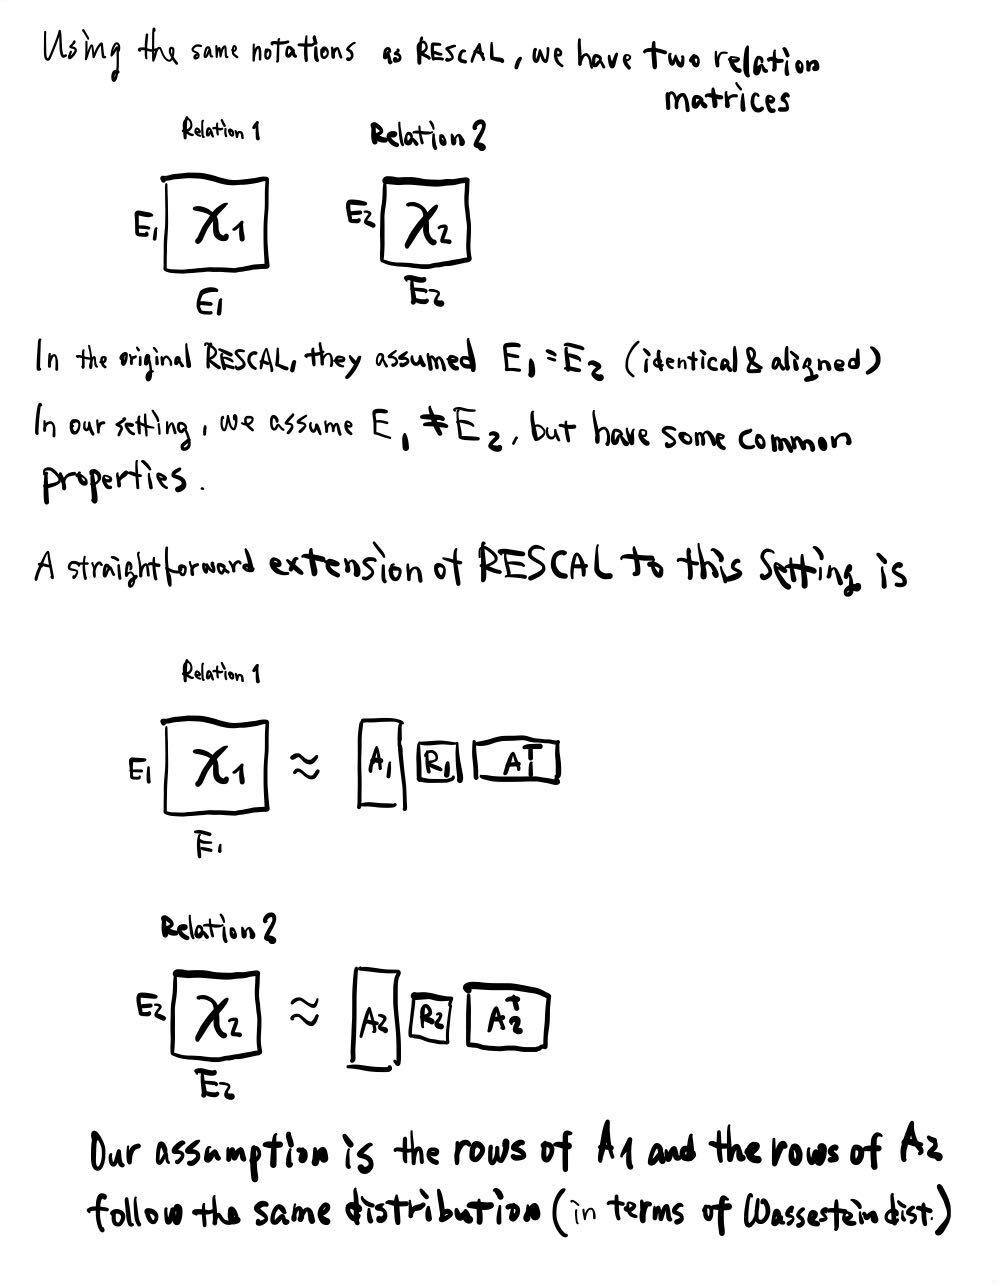 Using the same notations as RESCAL, we have two relation
matrices
Relation 1 Relation 2
E1 X1 E2 X2
E1 E2
In the original RESCAL, they assumed E1 = E2 (identical & aligned)
In our setting, we assume E1 ≠ E2, but have some common
properties.
A straightforward extension of RESCAL to this Setting is
Relation 1
E1 X1 ≈ A1 R1 A1ᵀ
E1
Relation 2
E2 X2 ≈ A2 R2 A2ᵀ
E2
Our assumption is the rows of A1 and the rows of A2
follow the same distribution (in terms of Wassestein dist.)